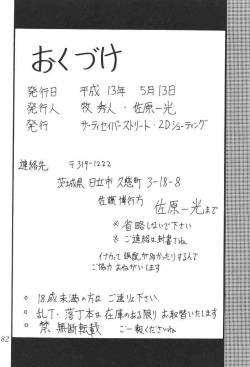 おくづけ
発行日 平成13年 5月13日
発行人 牧 秀人・佐原一光
発行 サーティセイバーストリート・2Dシューティング
連絡先 〒319-1222
茨城県 日立市 久慈町 3-18-8
佐藤 博行方 佐原一光まで
※ 省略しないで下さい
※ ご連絡は封書でね
イナカって誤配が多かったりするんで
ご協力おねがいします
○ 18歳未満の方は ご遠りょ下さい
○ 乱丁・落丁本は在庫のある限り お取替いたします
○ 禁 無断転載 ご一報くださいね
82